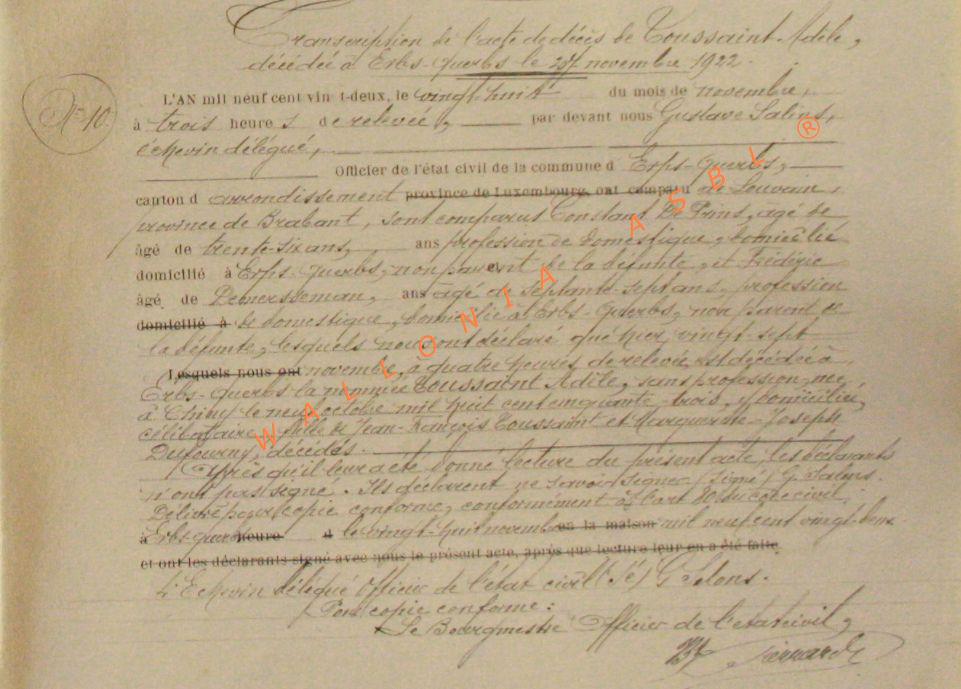 Transcription de l'acte de décès de Toussaint Adèle,
décédée à Erbs-Querbs le 27 novembre 1922.
Nº 10.
L'AN mil neuf cent vin t-deux, le vingt-huit du mois de novembre,
à trois heure s de relevée, par devant nous Gustave Salins,
échevin délégué,
Officier de l'état civil de la commune d Erps-Querbs,
canton d arrondissement province de Luxembourg, ont comparu de Louvain,
province de Brabant, sont comparus Constant De Prins, âgé de
âgé de trente-six ans, ans profession de domestique, domicilié
domicilié à Erps-Querbs, non parent de la défunte, et Frédéric
âgé de Demersseman, ans âgé de septante-sept ans, profession
domicilié à de domestique, domicilié à Erbs-Querbs, non parent de
la défunte, lesquels nous ont déclaré que hier, vingt-sept
Lesquels nous ont novembre, à quatre heures de relevée est décédée à
Erbs-Querbs la nommée Toussaint Adèle, sans profession, née
à Chiny le neuf octobre mil huit cent cinquante-trois, y domiciliée,
célibataire, fille de Jean-François Toussaint et Marguerite-Joseph
Dufourny, décédés.
Après qu'il leur a été donné lecture du présent acte, les déclarants
n'ont pas signé. Ils déclarent ne savoir signer (signé) G. Salins.
Délivré pour copie conforme, conformément à l'art 80 du code civil.
à Erbs-Querbs heure d le vingt-huit novembre en la maison mil neuf cent vingt-deux.
et ont les déclarants signé avec nous le présent acte, après que lecture leur en a été faite.
L'Echevin délégué Officier de l'état civil (Sé) G Salons.
Pour copie conforme:
Le Bourgmestre Officier de l'état civil,
WALLONIA ASBL ®